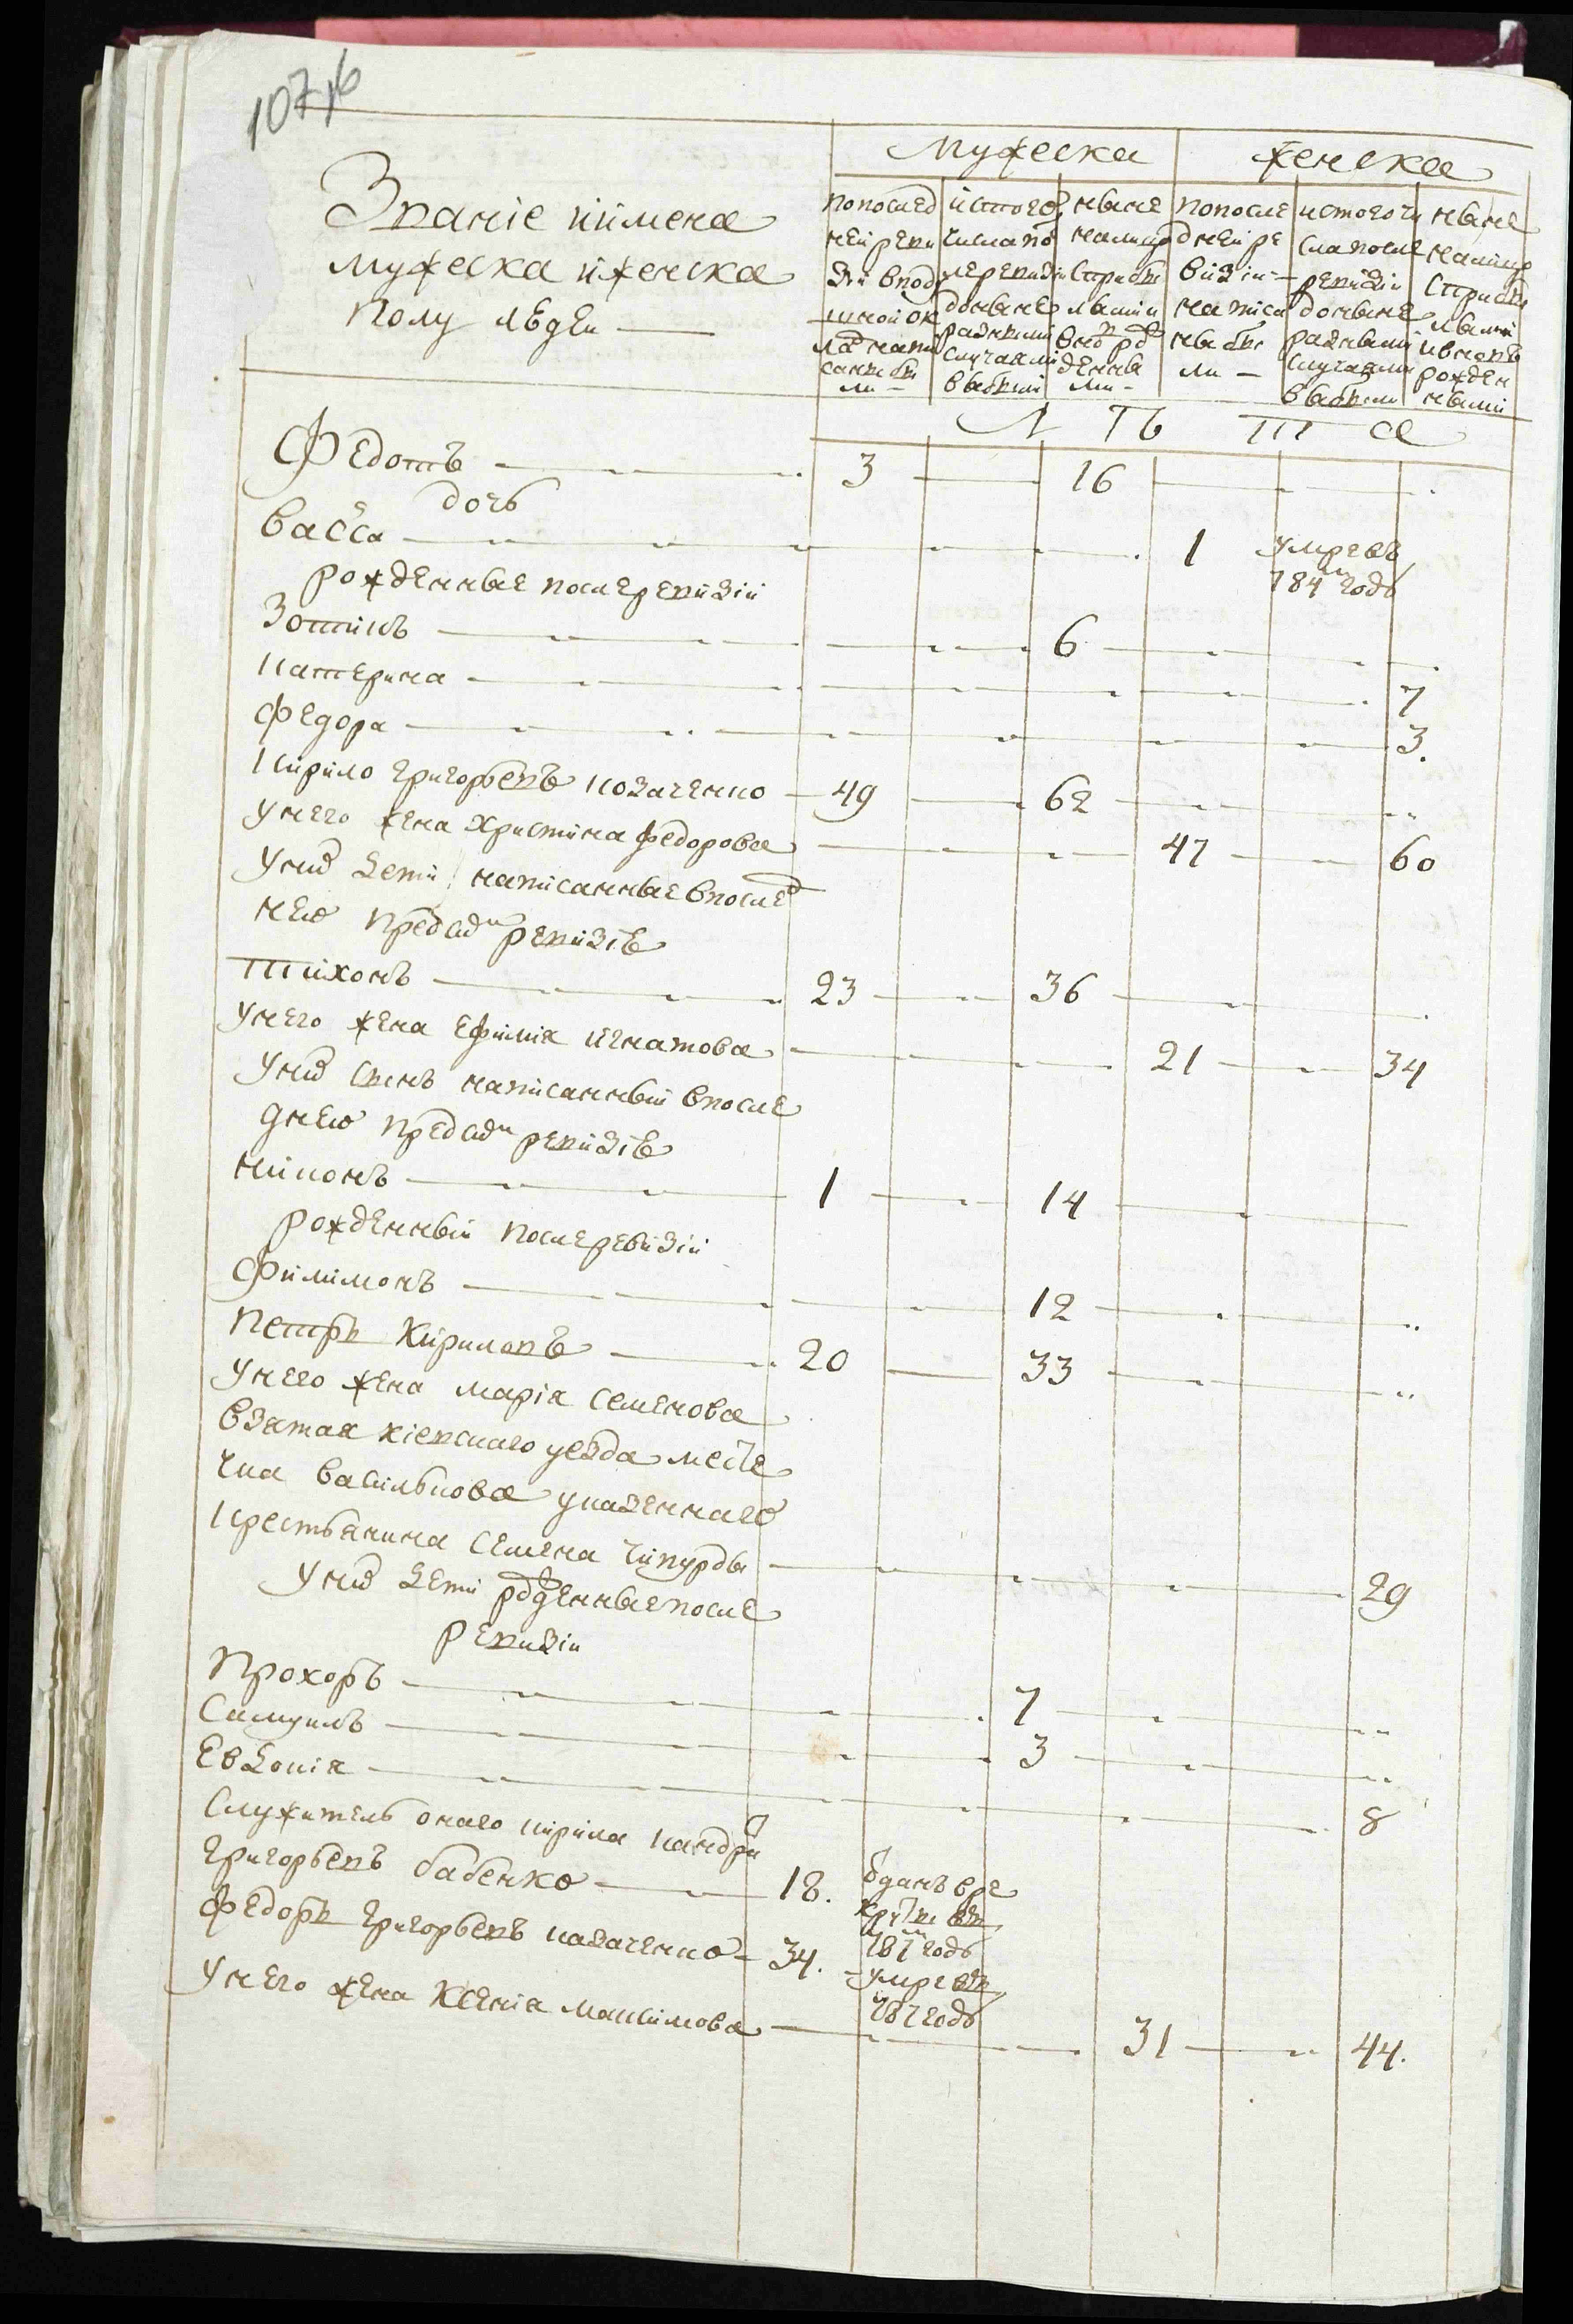 107 об
Званіе иимена
мужеска иженска
полу людеи
мужеска
женска
попослед
ней реви
зіи вподу
шной ок
лад напи
санны бы
ли
истого
числа по
лересизіи
доныне
разными
случаями
выбыли
ныне
налицо
Списбы
попосле
дней ре
визіи
написа
ны бы
ли
истого чи
сла после
ревизіи
доныне
разными
случаями
выбыли
ныне
налицо
ивновь
рожден
ными
Л Ѣ Т а
Федотъ 3 16
дочь
васса 1 умре въ
784м годъ
рожденные послеревизіи
Зотикъ 6
Катерина 7
Федора 3.
Кирило григорьевъ козаченко 49 62
Унего жена Христина федорова 47 60
Унихъ дети написанные впослед
нею пред сим ревизіе
Тихонъ 23 36
Унего жена Ефимія игнатова 21 34
Унихъ Сынъ написанный впосле
днею пред сим ревизіе
никонъ 1 14
рожденный послеревизіи
Филимонъ 12
Петръ Кириловъ 20 33
Унего жена марія семенова
взятая кіевскаго уезда месте
чка василькова указеннаго
крестьянина семена чипурды 29
Унихъ дети рожденные после
ревизіи
Прохоръ 7
Самуилъ 3
Евдокія 8
Служитель онаго кирила кандрат
григорьевъ бабенко 18. отданъ вре
круты въ
787 годъ
Федоръ григорьевъ казаченко 34. умре въ
787 годъ
Унего жена Ксенія максимова 31 44.